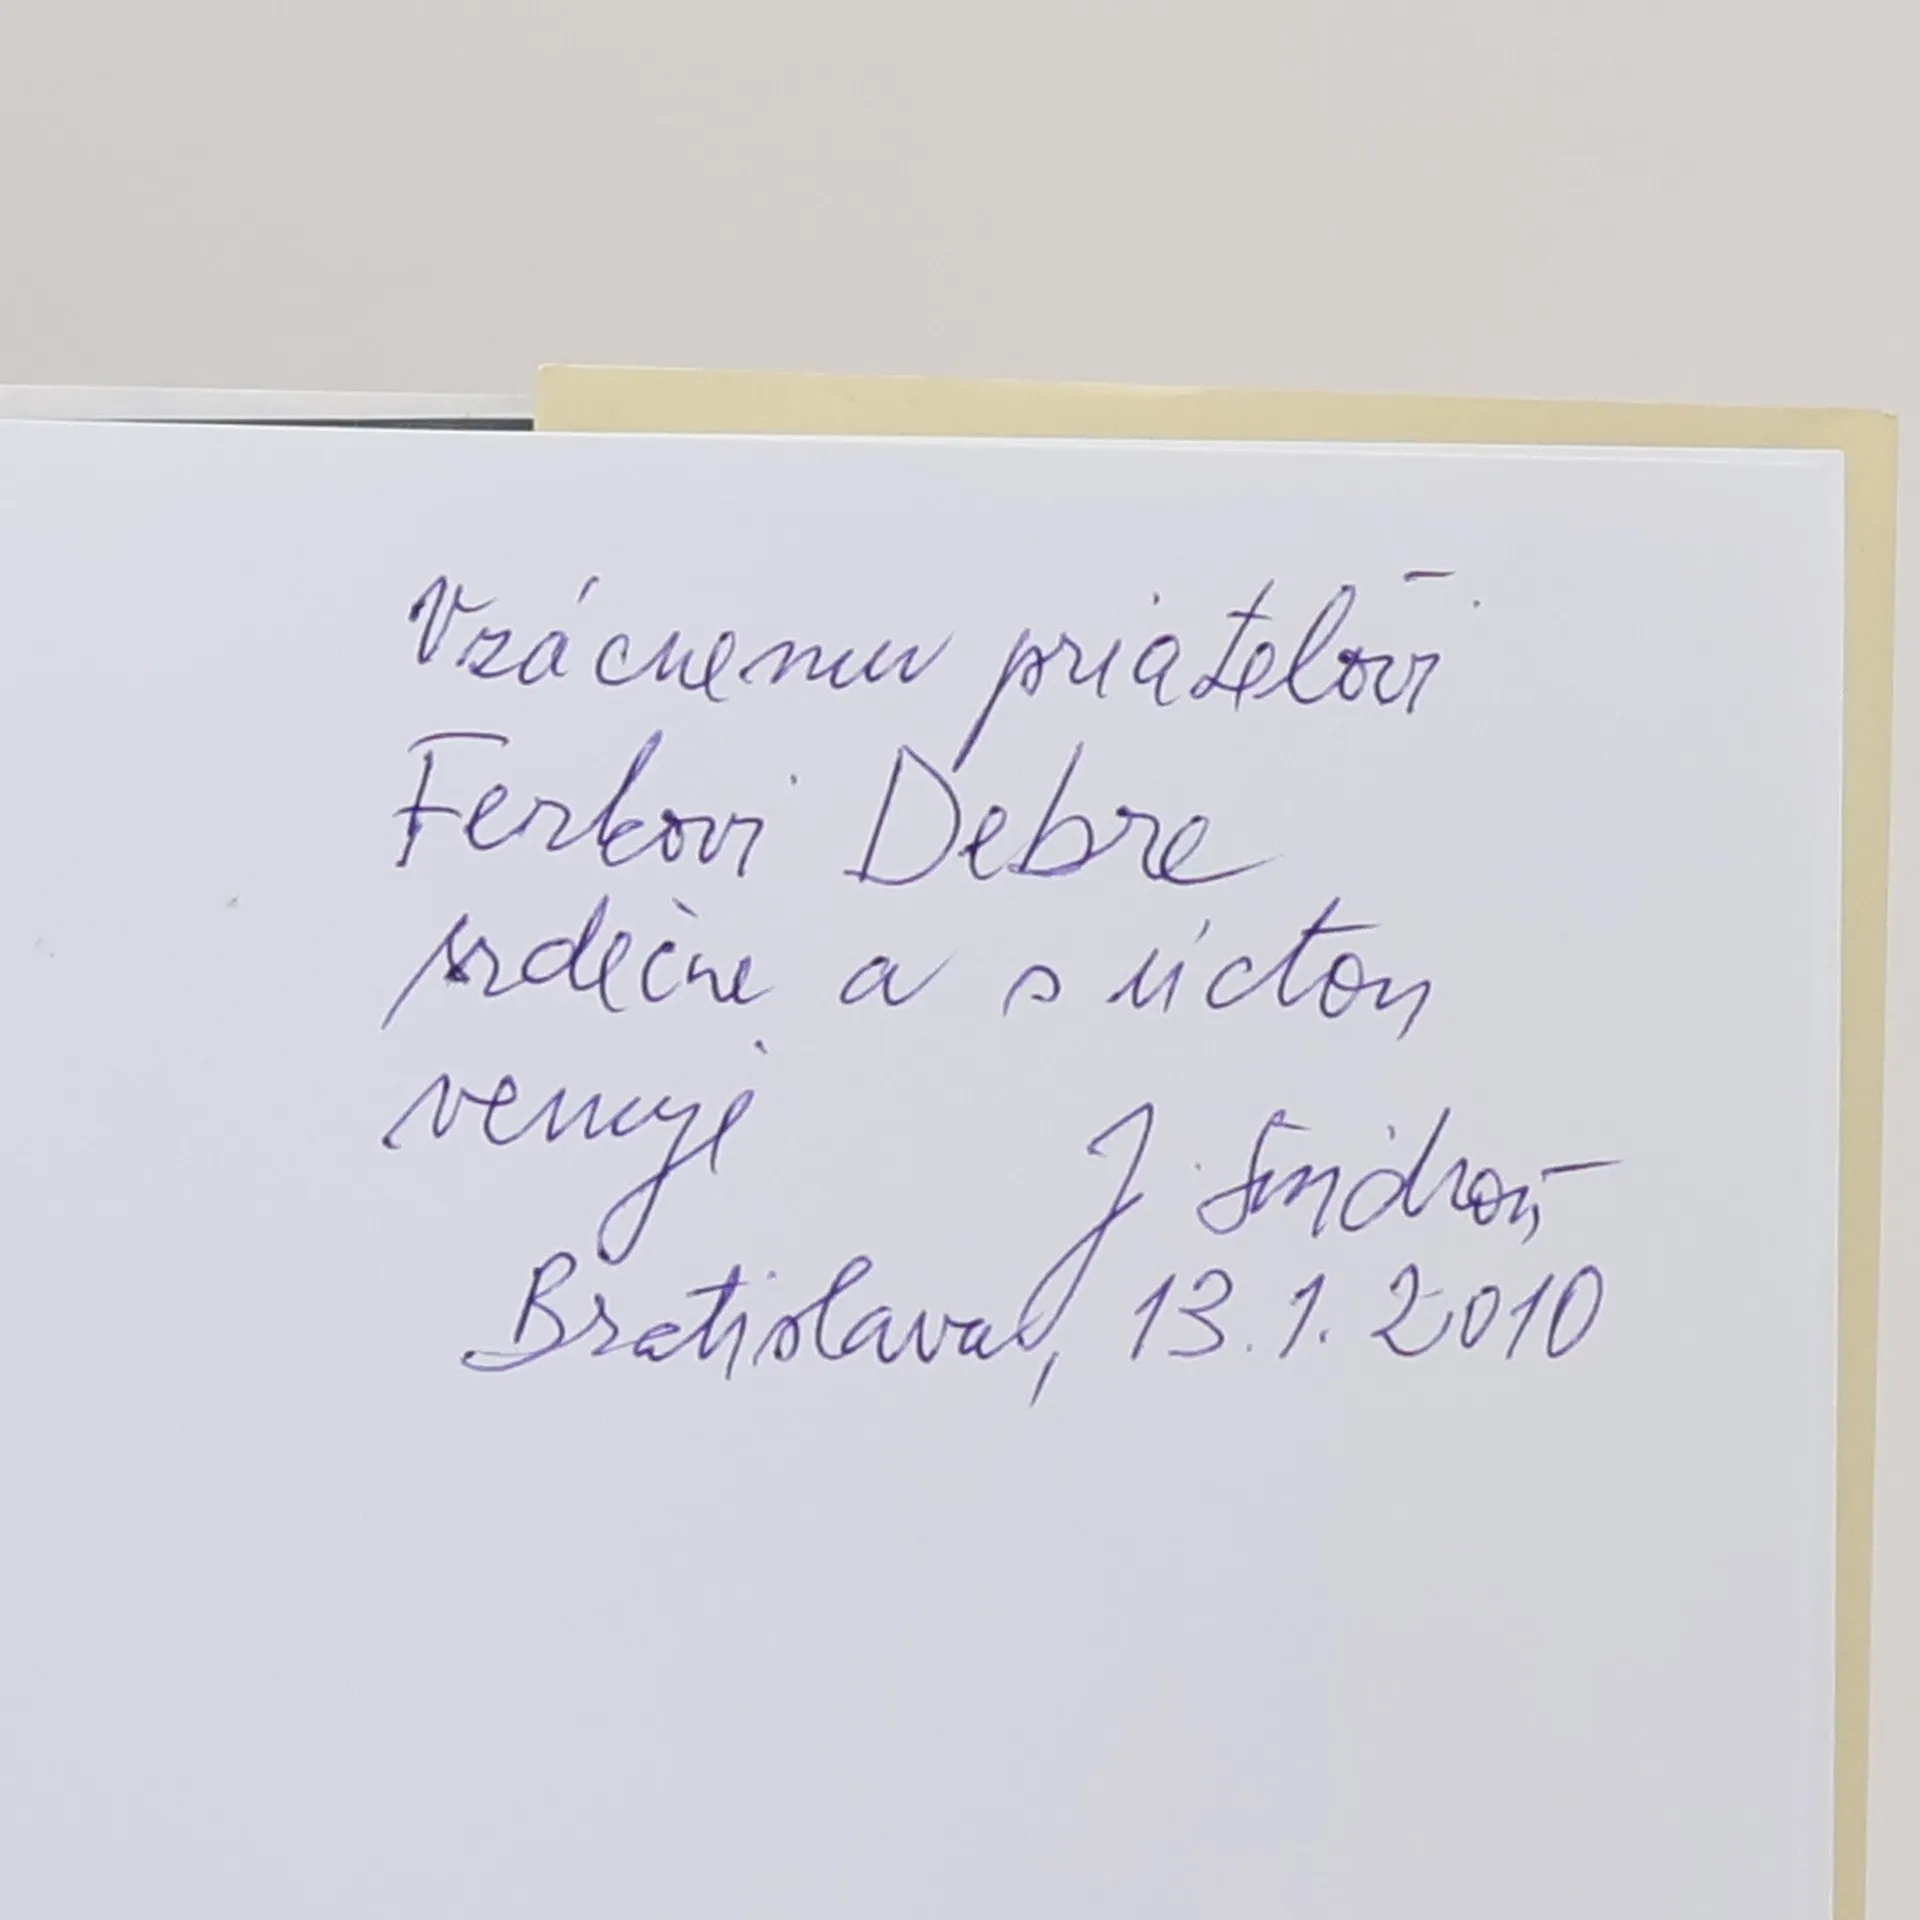 Vzácnemu priateľovi
Ferkovi Debre
srdečne a s úctou
venuje
J.
Bratislava, 13.1.2010